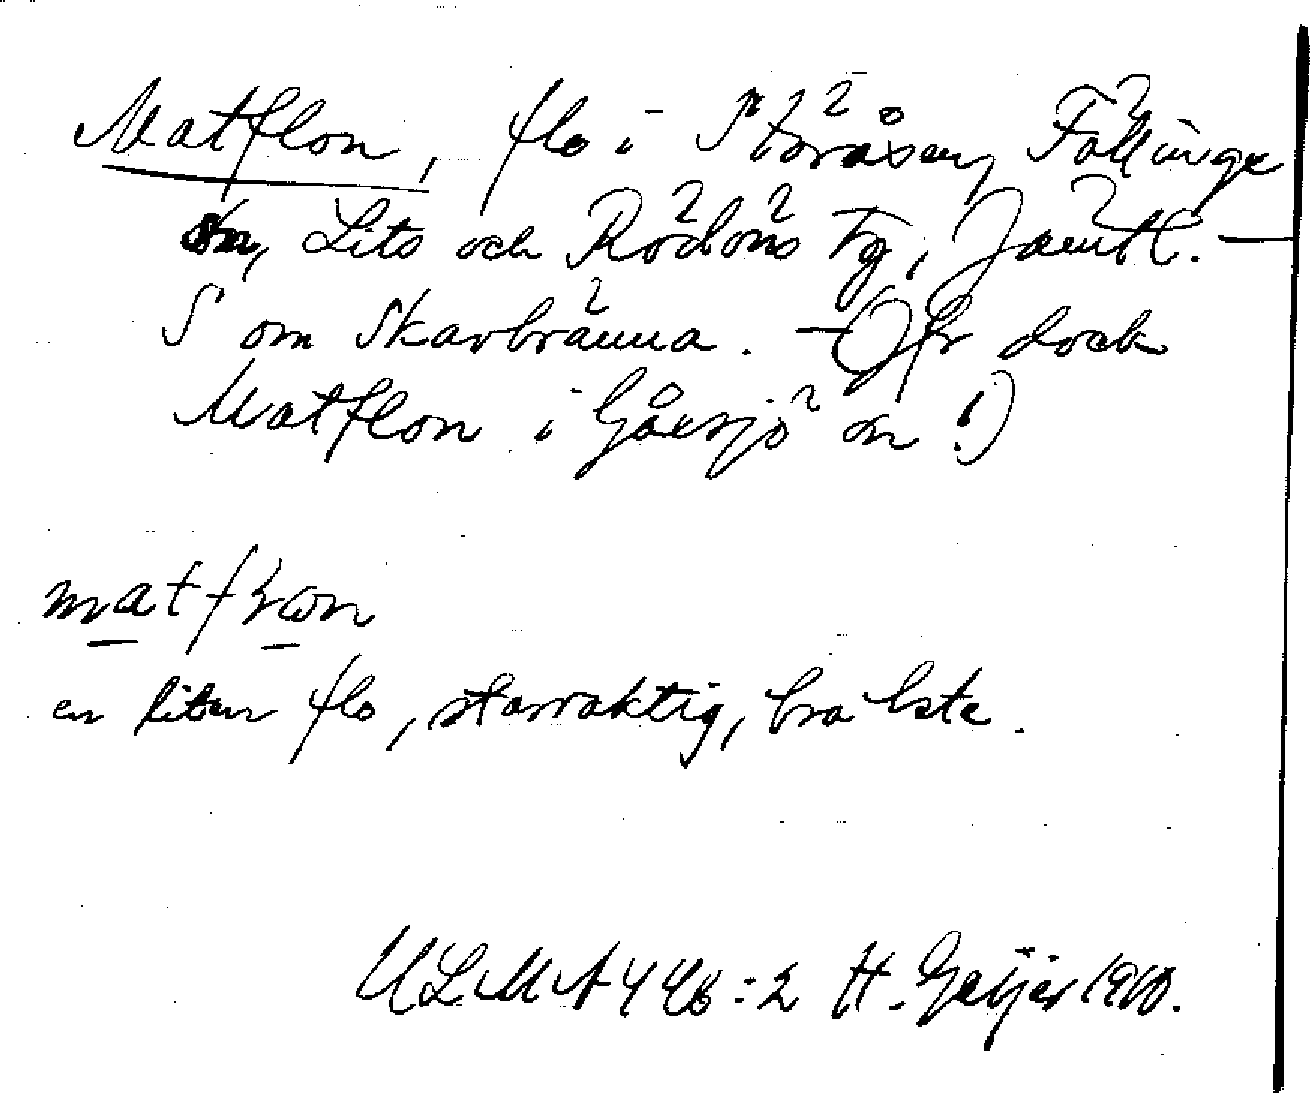 Matflon, flo i Storåsen, Föllinge
sn, Lits och Rödöns tg, Jämtl. —
S om Skarbränna. — (Jfr dock
Matflon i Gåxsjö sn!)
matf
en liten flo, starraktig, bra bete.
ULMA 446:2 H. Geijer 1910.